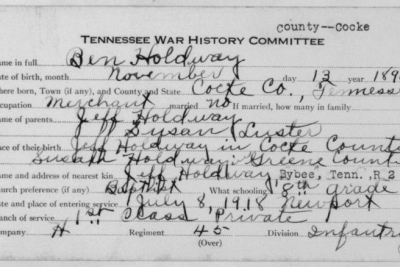 County--Cocke
TENNESSEE WAR HISTORY COMMITTEE
Name in full Ben Holdway
Date of birth, month November day 13 year 189
Where born, Town (if any), and County and State Cocke Co., Tennesse
Occupation Merchant married no If married, how many in family
Jeff Holdway
Susan Luster
Place of their birth Jeff Holdway in Cocke County
Susan Holdway: Greene County
Name and address of nearest kin Jeff Holdway Bybee, Tenn. R 2
Church preference (if any) Baptist What schooling 8th grade
Date and place of entering service July 8, 1918 Newport
Branch of service 1st Class Private
Company H Regiment 45 Division Infantry
(Over)